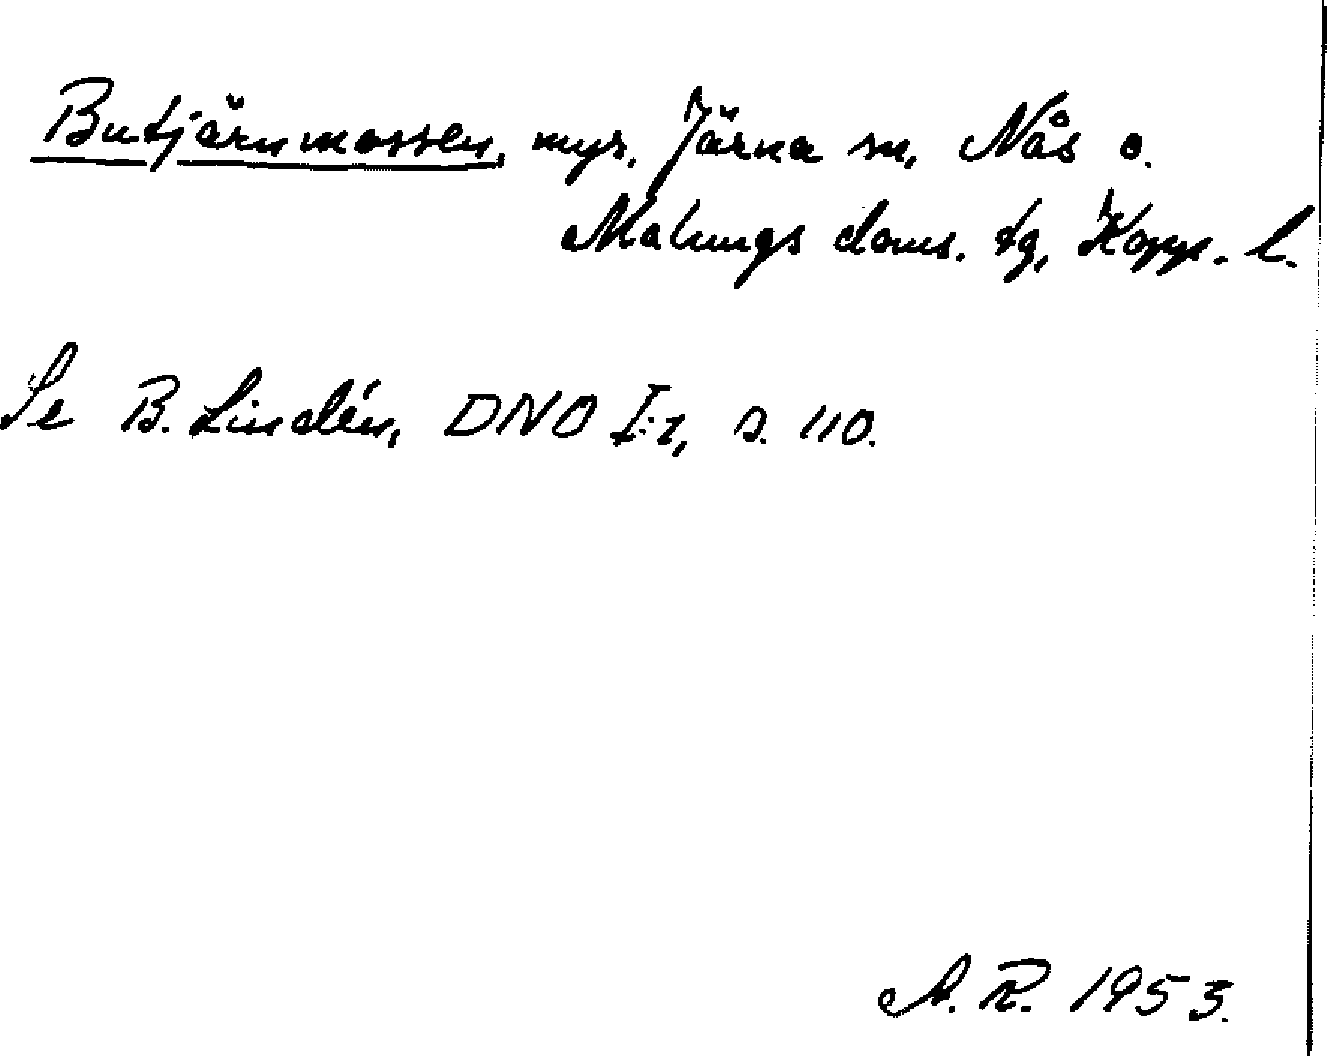 Butjärnmossen, myr, Järna sn, Nås o.
Malungs doms. tg, Kopp. l.
Se B. Lindén, DNO I:1, s. 110.
A. R. 1953.